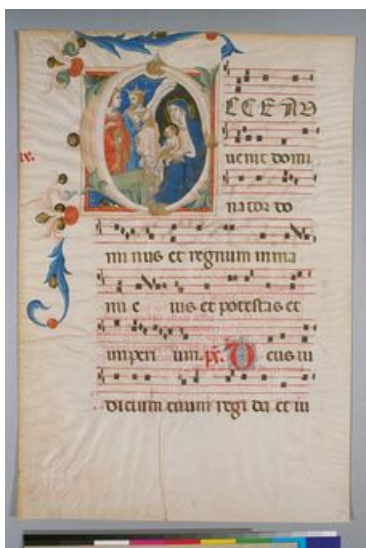 ECCE AD
uenit domi
nator do
minus et regnum in ma
nu e ius et potestas et
imperi um. ps. Deus iu
dicium tuum regi da et iu